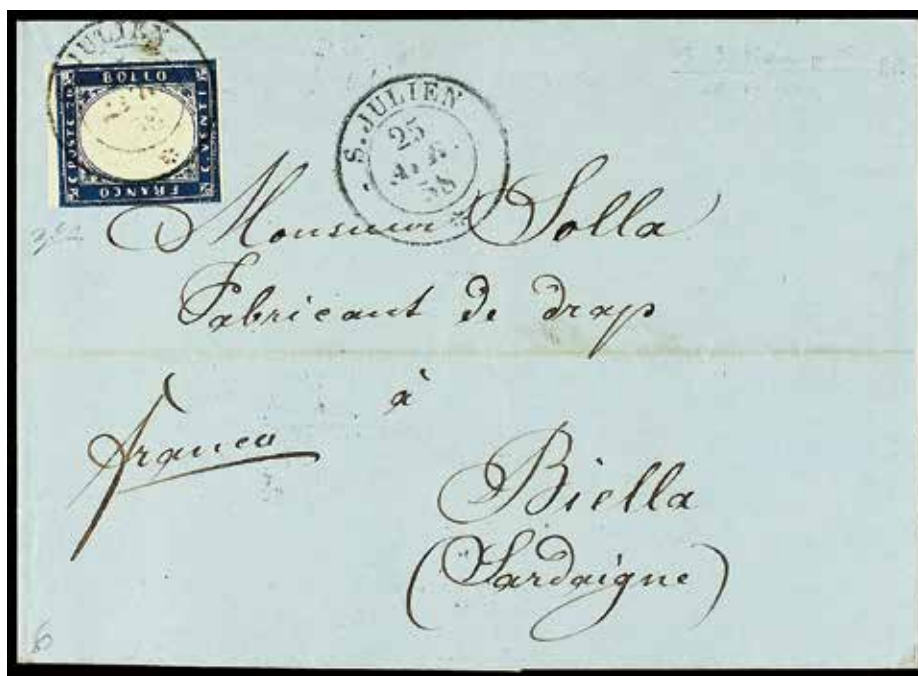 JULIEN
FRANCO BOLLO C. VENTI C. POSTE 20
S. JULIEN
25
58
Monsieur Solla
Fabricant de drap
à
franco
Biella
(Sardaigne)
6